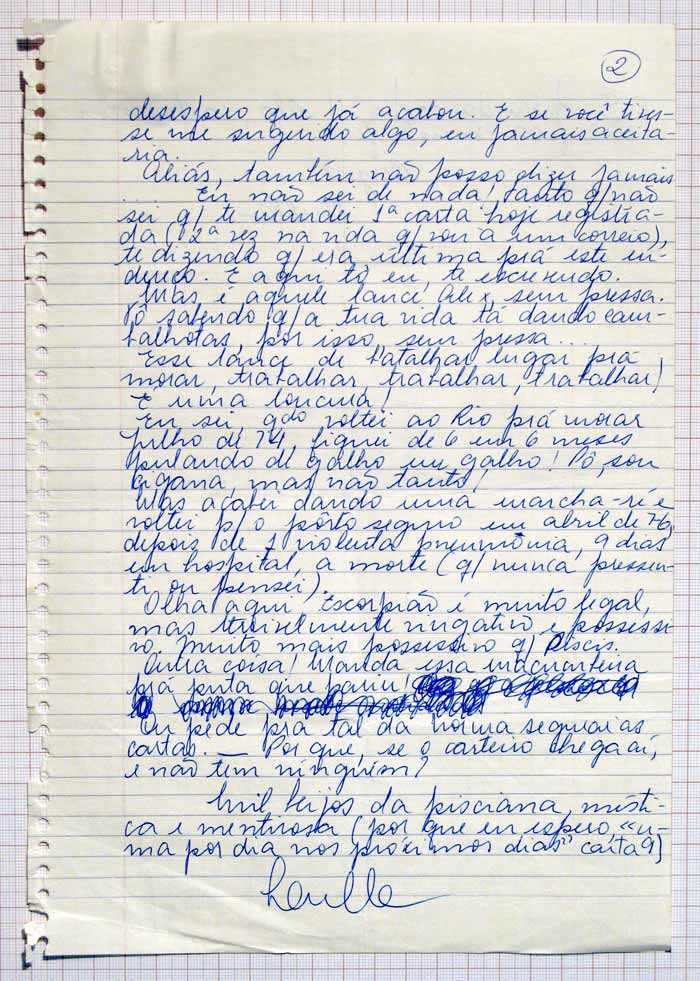 2
desespero que já acabou. E se você tives-
se me sugerido algo, eu jamais aceita-
ria.
Aliás, também não posso dizer jamais
... Eu não sei de nada! Tanto q/ não
sei q/ te mandei 1ª carta hoje registra-
da (2ª vez na vida q/ vou a um correio),
te dizendo q/ era última prá este en-
dereço. E aqui tô eu, te escrevendo.
Mas é aquele lance Alex, sem pressa.
Tô sabendo q/ a tua vida tá dando cam-
balhotas, por isso, sem pressa...
Esse lance de batalhar lugar prá
morar, trabalhar, trabalhar, trabalhar!
É uma loucura!
Eu sei, qdo voltei ao Rio prá morar
julho de 74, fiquei de 6 em 6 meses
pulando de galho em galho! Pô, sou
cigana, mas não tanto!
Mas acabei dando uma marcha-ré e
voltei p/ o pôrto seguro em abril de 76,
depois de 1 violenta pneumonia, 9 dias
em hospital, a morte (q/ nunca pressen-
ti, ou pensei).
Olha aqui, Escorpião é muito legal,
mas terrivelmente negativo e possessi-
vo. Muito mais possessivo q/ Pisces.
Outra coisa! Manda essa macumbeira
prá puta que pariu!
Ou pede prá tal da Norma segurar as
cartas. — Por que, se o carteiro chega aí,
e não tem ninguém?
Mil beijos da pisciana, místi-
ca e mentirosa (por que eu espero, "u-
ma por dia nos próximos dias" carta 9)